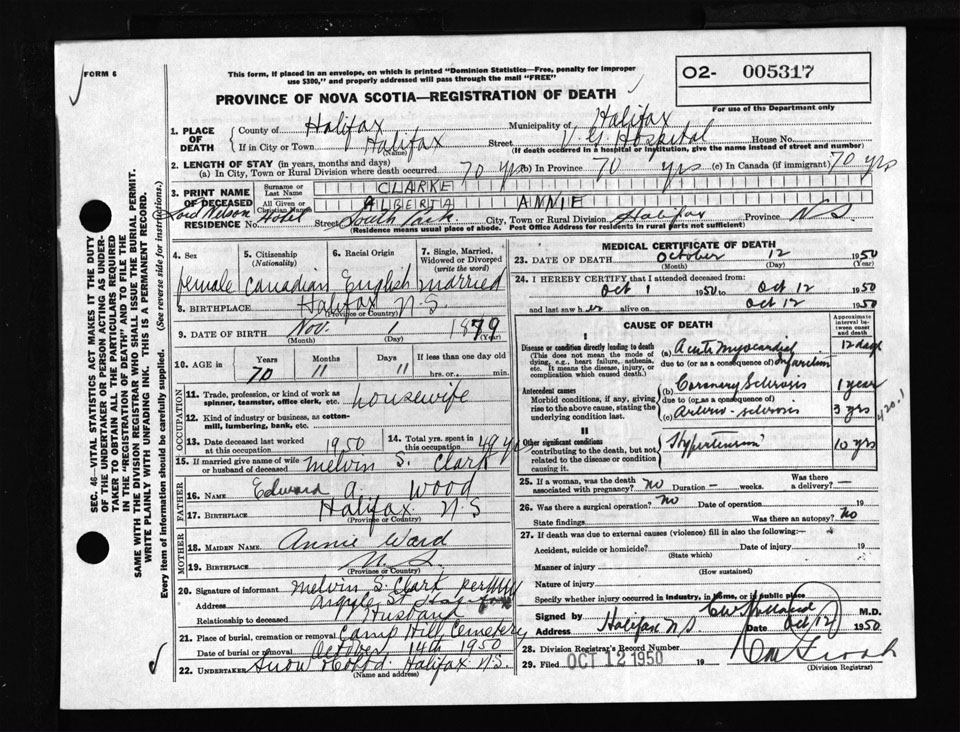 FORM 6
This form, if placed in an envelope, on which is printed "Dominion Statistics—Free, penalty for improper
use $300," and properly addressed will pass through the mail "FREE"
O2- 005317
For use of the Department only
PROVINCE OF NOVA SCOTIA—REGISTRATION OF DEATH
1. PLACE OF DEATH
County of Halifax Municipality of Halifax
If in City or Town Halifax (Name) Street V. G. Hospital House No.
(If death occurred in a hospital or institution, give the name instead of street and number)
2. LENGTH OF STAY (in years, months and days)
(a) In City, Town or Rural Division where death occurred 70 yrs (b) In Province 70 yrs (c) In Canada (if immigrant) 70 yrs
3. PRINT NAME OF DECEASED
Surname or Last Name CLARKE
All Given or Christian Names ALBERTA ANNIE
RESIDENCE No. Lord Nelson Hotel Street South Park City, Town or Rural Division Halifax Province N S
(Residence means usual place of abode. Post Office Address for residents in rural parts not sufficient)
4. Sex
female
5. Citizenship (Nationality)
Canadian
6. Racial Origin
English
7. Single, Married, Widowed or Divorced (write the word)
married
8. BIRTHPLACE Halifax N S
(Province or Country)
9. DATE OF BIRTH Nov. 1 1879
(Month) (Day) (Year)
10. AGE in Years 70 Months 11 Days 11 If less than one day old hrs. or min.
OCCUPATION
11. Trade, profession, or kind of work as spinner, teamster, office clerk, etc. housewife
12. Kind of industry or business, as cotton-mill, lumbering, bank, etc.
13. Date deceased last worked at this occupation 1950
14. Total yrs. spent in this occupation 49 yrs
15. If married give name of wife or husband of deceased Melvin S. Clark
FATHER
16. NAME Edward A. Wood
17. BIRTHPLACE Halifax N S
(Province or Country)
MOTHER
18. MAIDEN NAME Annie Ward
19. BIRTHPLACE N. S.
(Province or Country)
20. Signature of informant Melvin S. Clark per
Address Argyle St Halifax
Relationship to deceased Husband
21. Place of burial, cremation or removal Camp Hill Cemetery
Date of burial or removal October 14th 1950
22. UNDERTAKER Snow & Co Ltd. Halifax N. S.
(Name and address)
MEDICAL CERTIFICATE OF DEATH
23. DATE OF DEATH October 12 1950
(Month) (Day) (Year)
24. I HEREBY CERTIFY that I attended deceased from
Oct 1 1950 to Oct 12 1950
and last saw her alive on Oct 12 1950
CAUSE OF DEATH
Approximate interval between onset and death
I
Disease or condition directly leading to death
(This does not mean the mode of dying, e.g., heart failure, asthenia, etc. It means the disease, injury, or complication which caused death.)
(a) Acute myocardial infarction 12 days
due to (or as a consequence of)
Antecedent causes
Morbid conditions, if any, giving rise to the above cause, stating the underlying condition last.
(b) Coronary Sclerosis 1 year
due to (or as a consequence of)
(c) Arterio-sclerosis 3 yrs
420.1
II
Other significant conditions contributing to the death, but not related to the disease or condition causing it.
Hypertension 10 yrs
25. If a woman, was the death associated with pregnancy? no Duration – weeks. Was there a delivery? –
26. Was there a surgical operation? no Date of operation 19
State findings Was there an autopsy? no
27. If death was due to external causes (violence) fill in also the following:—
Accident, suicide or homicide? Date of injury 19
(State which)
Manner of injury
(How sustained)
Nature of injury
Specify whether injury occurred in industry, in home, or in public place
Signed by M.D.
Address Halifax N.S. Date Oct 12 1950
28. Division Registrar's Record Number
29. Filed OCT 12 1950 19
(Division Registrar)
SEC. 46—VITAL STATISTICS ACT MAKES IT THE DUTY
OF THE UNDERTAKER OR PERSON ACTING AS UNDER-
TAKER TO OBTAIN ALL THE PARTICULARS REQUIRED
IN THE "REGISTRATION OF DEATH" AND TO FILE THE
SAME WITH THE DIVISION REGISTRAR WHO SHALL ISSUE THE BURIAL PERMIT.
WRITE PLAINLY WITH UNFADING INK. THIS IS A PERMANENT RECORD.
Every item of information should be carefully supplied. (See reverse side for instructions.)